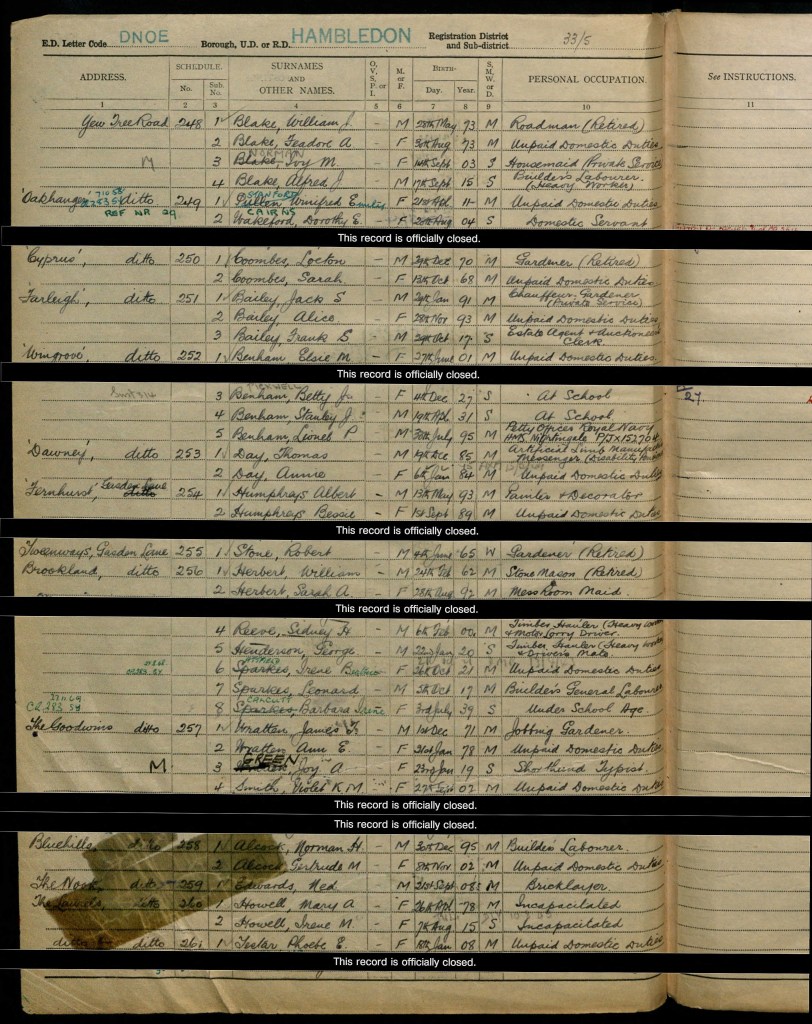 E.D. Letter Code DNOE Borough, U.D. or R.D. HAMBLEDON Registration District and Sub-district 33/5
ADDRESS. SCHEDULE. SURNAMES AND OTHER NAMES. O, V, S, P, or I M. or F. BIRTH- S, M, W, or D. PERSONAL OCCUPATION. See INSTRUCTIONS.
No. Sub. No. Day. Year.
1 2 3 4 5 6 7 8 9 10 11
Yew Tree Road 248 1 Blake, William J. - M 28th May 73 M Roadman (Retired)
2 Blake, Feadore A - F 30th Aug 73 M Unpaid Domestic Duties
NORMAN
M 3 Blake, Ivy M. - F 14th Sept 03 S Housemaid Private Service
4 Blake, Alfred J - M 17th Sept 15 S Builder's Labourer. (Heavy Worker)
STANFORD
'Oakhanger' ditto 249 1 Pullen Winifred Emily F 21st 11 M Unpaid Domestic Duties
REF WR 29 CAIRNS
2 Wakeford, Dorothy E. F 26th Aug 04 S Domestic Servant
This record is officially closed.
'Cyprus', ditto 250 1 Coombes, Locton - M 29th Dec 70 M Gardener (Retired)
2 Coombes, Sarah. F 13th Oct 68 M Unpaid Domestic Duties
'Farleigh', ditto 251 1 Bailey, Jack S - M 24th Jan 91 M Chauffeur-Gardener (Private Service)
2 Bailey, Alice F 28th Nov 93 M Unpaid Domestic Duties
3 Bailey, Frank S - M 29th Oct 17 S Estate Agent & Auctioneers Clerk.
'Wingrove', ditto 252 1 Benham, Elsie M. - F 27th June 01 M Unpaid Domestic Duties.
This record is officially closed.
PICKWELL
3 Benham, Betty Ju - F 4th Dec 27 S At School 27.
4 Benham, Stanley J. - M 19th Apl 31 S At School
5 Benham, Lionel P M 30th July 95 M Petty Officer Royal Navy HMS Nightingale P/JX152704
'Dawney', ditto 253 1 Day, Thomas - M 19th Dec 85 M Artificial Limb Manufact Messenger (Disability
2 Day, Annie F 6th Jan 84 M Unpaid Domestic Duties
'Fernhurst', Gasden Lane ditto 254 1 Humphreys Albert - M 13th May 93 M Painter & Decorator
2 Humphreys Bessie - F 1st Sept 89 M Unpaid Domestic Duties
This record is officially closed.
Tweenways, Gasden Lane 255 1 Stone, Robert - M 4th June 65 W Gardener (Retired)
Brookland, ditto 256 1 Herbert, William - M 24th Feb 62 M Stone Mason (Retired)
2 Herbert, Sarah A. F 28th Aug 92 M Mess Room Maid.
This record is officially closed.
4 Reeve, Sidney H - M 6th Feb 00 M Timber Hauler (Heavy Worker & Motor Lorry Driver.
5 Henderson, George - M 22nd Jan 20 S Timber Hauler (Heavy Worker & Driver's Mate.
6 Sparkes, Irene F 26th Oct 21 M Unpaid Domestic Duties
7 Sparkes, Leonard - M 5th Oct 17 M Builder's General Labourer
CALCUTT
CR 283 54 8 Sparkes, Barbara Irene F 3rd July 39 S Under School Age.
The Goodwins ditto 257 1 Wratten, James - M 1st Dec 71 M Jobbing Gardener.
2 Wratten Ann E. F 21st Jan 78 M Unpaid Domestic Duties
GREEN
M 3 Joy A. F 23rd Jan 19 S Shorthand Typist.
4 Smith, Violet K.M. F 27th Sept 02 M Unpaid Domestic Duties
This record is officially closed.
This record is officially closed.
Bluehills, ditto 258 1 Alcock, Norman H. M 30th Dec 95 M Builders Labourer.
2 Alcock, Gertrude M - F 8th Nov 02 M Unpaid Domestic Duties
The Nook, ditto 259 1 Edwards, Ned - M 21st Sept 08 M Bricklayer.
The Laurels, ditto 260 1 Howell, Mary A - F 26th Apl 78 M Incapacitated
2 Howell, Irene M - F 7th Aug 15 S Incapacitated
ditto ditto 261 1 Tester Phoebe E. F 18th Jan 08 M Unpaid Domestic Duties
This record is officially closed.